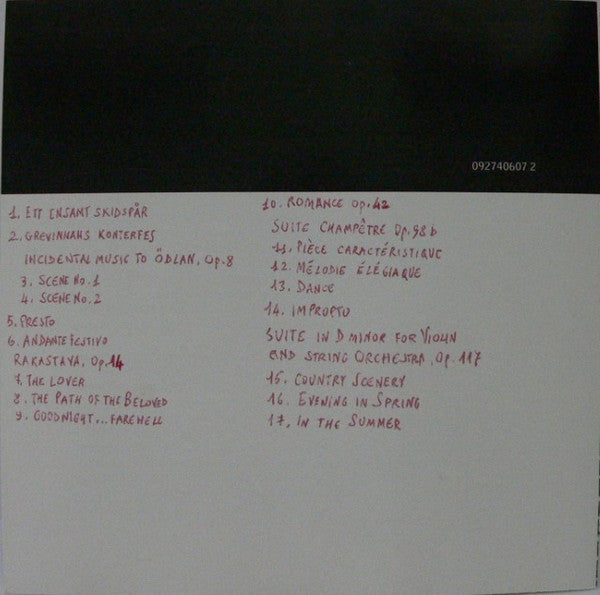 092740607 2
1. ETT ENSAMT SKIDSPÅR
2. GREVINNANS KONTERFEJ
INCIDENTAL MUSIC TO ÖDLAN, OP.8
3. SCENE NO.1
4. SCENE NO.2
5. PRESTO
6. ANDANTE FESTIVO
RAKASTAVA, OP.14
7. THE LOVER
8. THE PATH OF THE BELOVED
9. GOODNIGHT... FAREWELL
10. ROMANCE OP.42
SUITE CHAMPÊTRE OP.98b
11. PIÈCE CARACTÉRISTIQUE
12. MÉLODIE ÉLÉGIAQUE
13. DANCE
14. IMPROPTU
SUITE IN D MINOR FOR VIOLIN
AND STRING ORCHESTRA, OP.117
15. COUNTRY SCENERY
16. EVENING IN SPRING
17. IN THE SUMMER